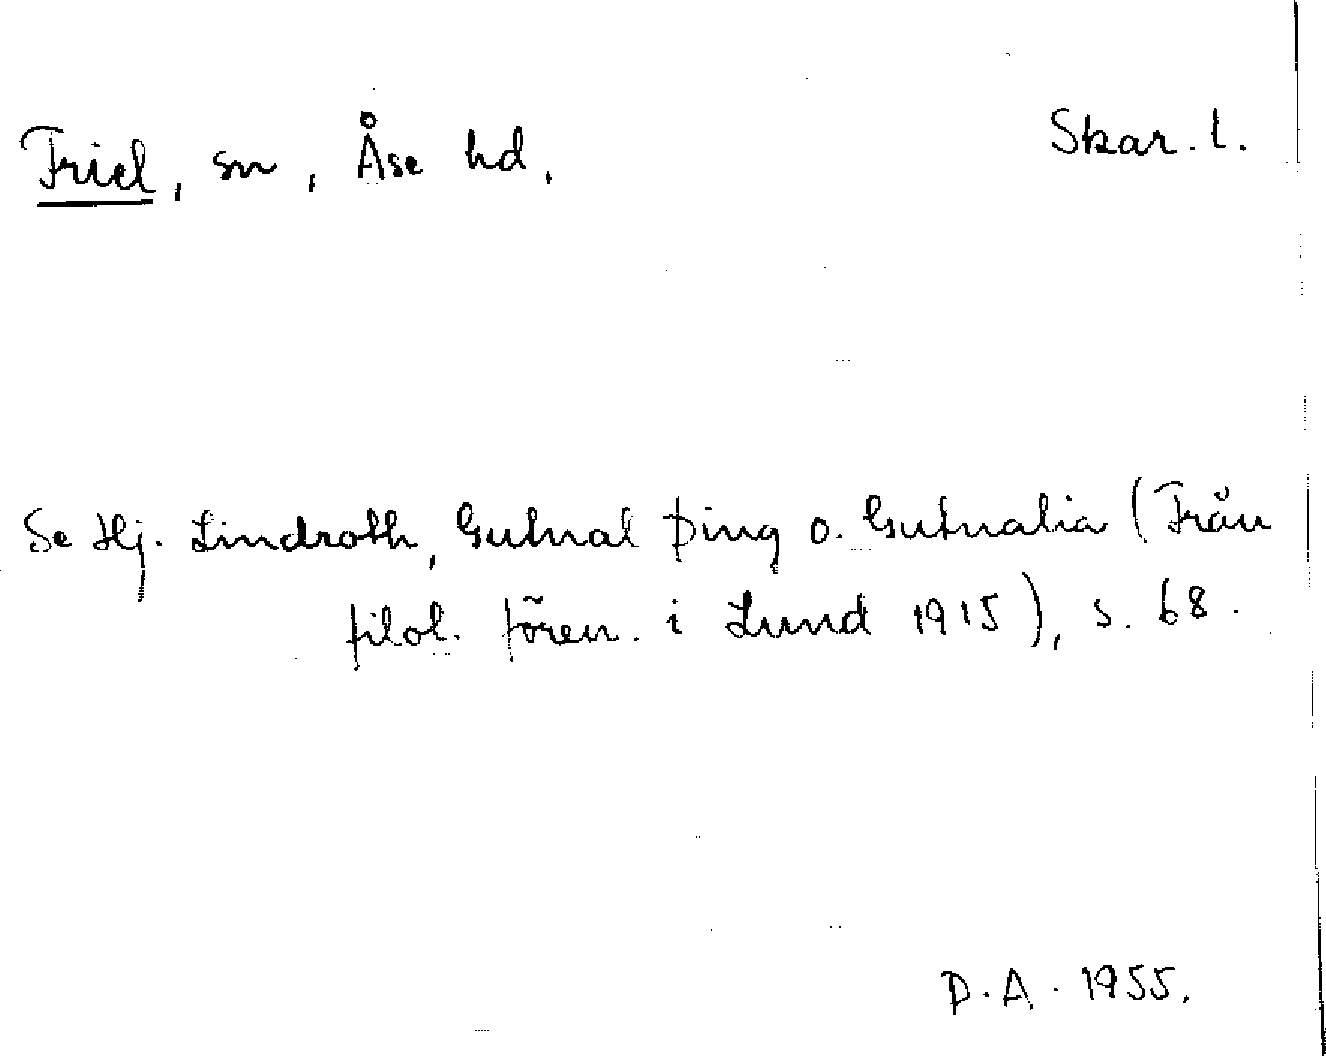 Friel, sn, Åse hd, Skar. l.
Se Hj. Lindroth, Gutnal þing o. Gutnalia (Från
filol. fören. i Lund 1915), s. 68.
D. A. 1955.